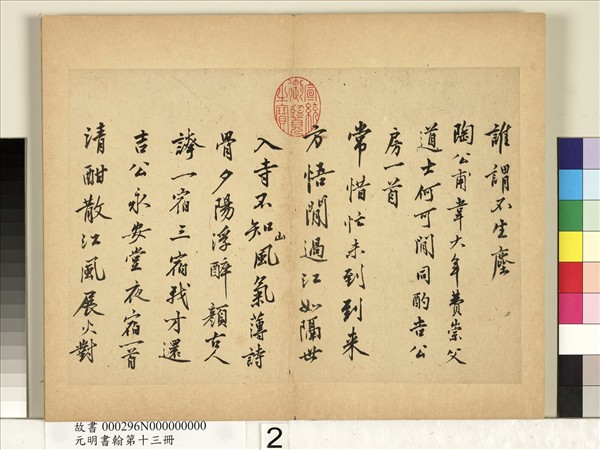 誰謂不生塵
陶公甫韋大年費崇父
道士何可閒同酌吉公
房一首
常惜忙未到到来
方悟閒過江如隔世
入寺不知山風氣薄詩
骨夕陽浮醉顏古人
誇一宿三宿我才還
吉公永安堂夜宿一首
清酣散江風展火對
宣統御覽之寶
故書 000296N000000000
元明書翰第十三冊
2